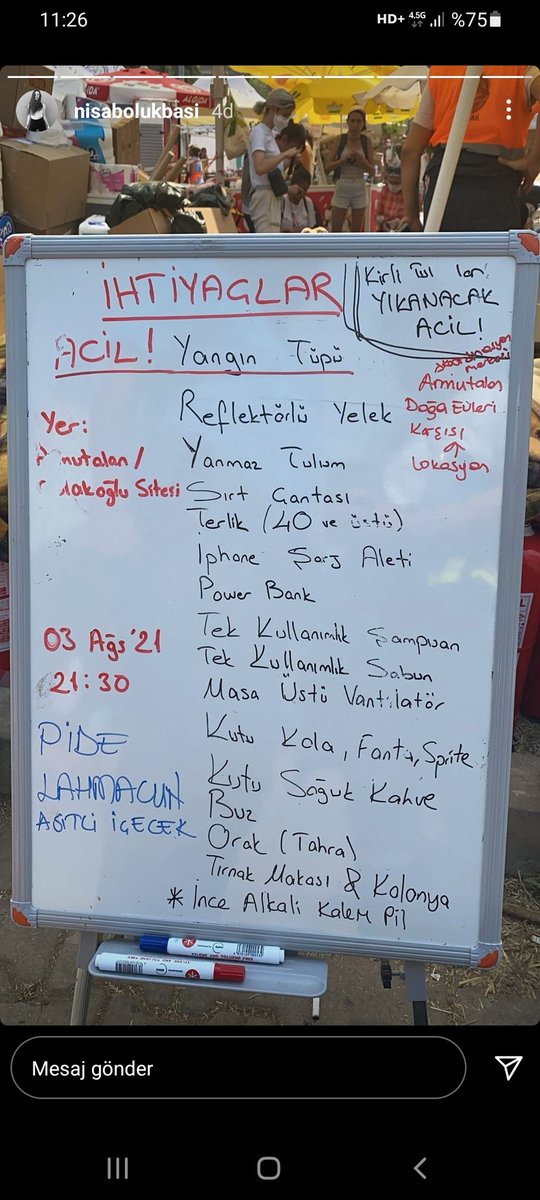 11:26
HD+ 4.5G %75
nisabolukbasi 4d
ALGIDA
İHTİYAÇLAR
Kirli Tulumları
YIKANACAK
ACİL!
ACİL! Yangın Tüpü
Koordinasyon
merkezi
Armutalan
Doğa Evleri
Karşısı
Lokasyon
Yer:
Armutalan/
Sitesi
Reflektörlü Yelek
Yanmaz Tulum
Sırt Çantası
Terlik (40 ve üstü)
İphone Şarj Aleti
Power Bank
03 Ağs'21
21:30
Tek Kullanımlık Şampuan
Tek Kullanımlık Sabun
Masa Üstü Vantilatör
PİDE
LAHMACUN
ASİTLİ İÇECEK
Kutu Kola, Fanta, Sprite
Kutu Soğuk Kahve
Buz
Orak (Tahra)
Tırnak Makası & Kolonya
* İnce Alkali Kalem Pil
Mesaj gönder